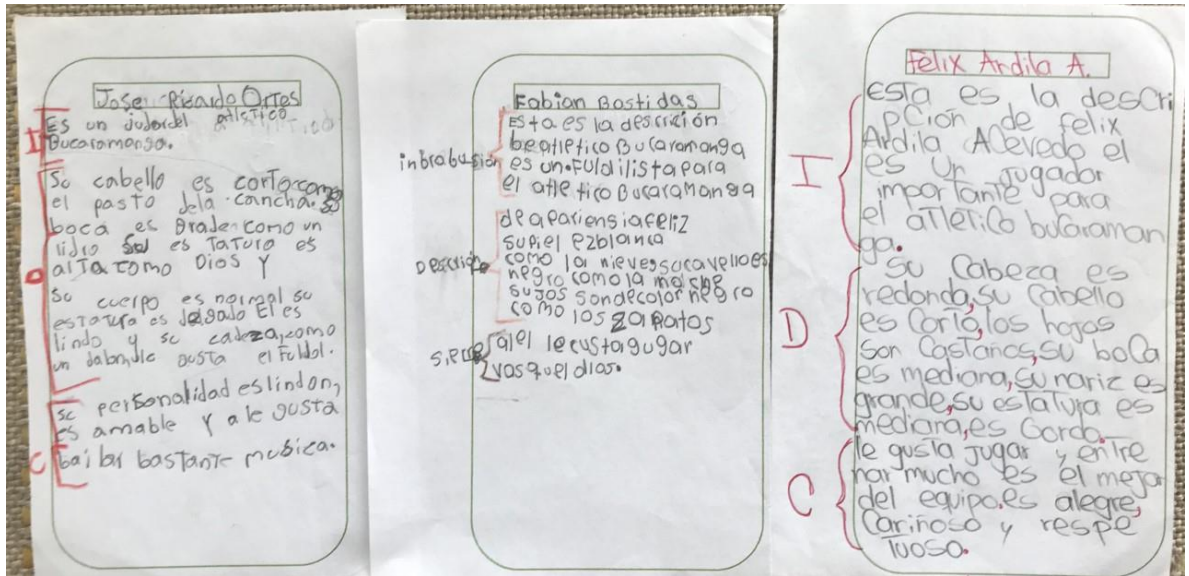 Jose Ricardo Ortes
I
Es un judordel atletico
Bucaramanga.
D
Su cabello es corto como
el pasto dela cancha. su
boca es grade como un
lidro es Taturo es
alTa como Dios y
su cuerpo es normal su
esTatura es delgado El es
lindo y su cadeza, como
un dabn, le gusta el Futdol.
C
su personalidad es lindon,
es amable y a le gusta
bailar bastante mubica.
Fabian Bostidas
intrabusión
Esta es la descrición
be atletico Bucaramanga
es un Fuldilista para
el atletico Bucaramanga
Descrición
de apariensia feliz
supiel ezblanca
como la nieves su cavello es
negro como la noche
sujos sondecolor negro
como los zapatos
a el le custa gugar
vasquel dias.
Felix Ardila A.
I
Esta es la descri
pción de felix
Ardila Acevedo el
es un jugador
importante para
el atlético bucaraman
ga.
D
Su Cabeza es
redonda, su Cabello
es Corto, los hojos
son Castaños, su boca
es mediana, su nariz es
grande, su estatura es
mediana, es Gordo.
C
le gusta jugar y entre
nar mucho es el mejor
del equipo. es alegre,
Cariñoso y respe
Tuoso.